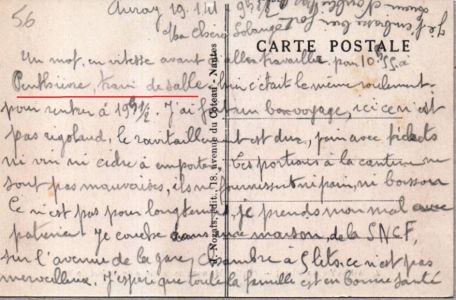 56
Auray 19 Juil
Ma Chère Solange
CARTE POSTALE
Un mot, en vitesse avant d'aller travailler, pour 10h55 à
Penthièvre, train de sable, hier c'était le même roulement
pour rentrer à 19h1/2. J'ai fait un bon voyage, ici ce n'est
pas rigolard, le ravitaillement est dur, pain avec tickets
ni vin ni cidre à emporter. Les portions à la cantine ne
sont pas mauvaises, ils ne fournissent ni pain, ni boisson
Ce n'est pas pour longtemps, je prends mon mal avec
patience. Je couche dans une maison, de la SNCF,
sur l'avenue de la gare, chambre à 5 lits, ce n'est pas
merveilleux. J'espère que toute la famille est en bonne santé
Nozais, édit., 18, avenue du Coteau - Nantes